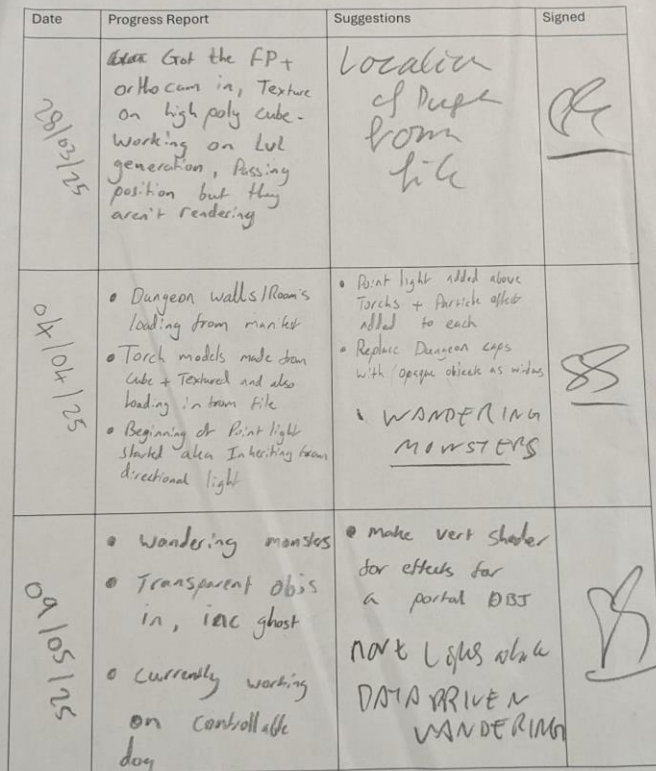 Date Progress Report Suggestions Signed
28/03/25
Got the FP +
ortho cam in, Texture
on high poly cube.
Working on Lvl
generation, Passing
position but they
aren't rendering
Location
of
from
file
04/04/25
• Dungeon walls/Rooms
loading from manifest
• Torch models made from
Cube + Textured and also
loading in from file
• Beginning of Point light
started aka Inheriting from
directional light
• Point light added above
Torchs + Particle effect
added to each
• Replace Dungeon caps
with opaque objects as
• WANDERING
MONSTERS
09/05/25
• Wandering monsters
• Transparent objs
in, inc ghost
• Currently working
on controllable
dog
• make vert shader
for effects for
a portal OBJ
more Lights
DATA DRIVEN
WANDERING